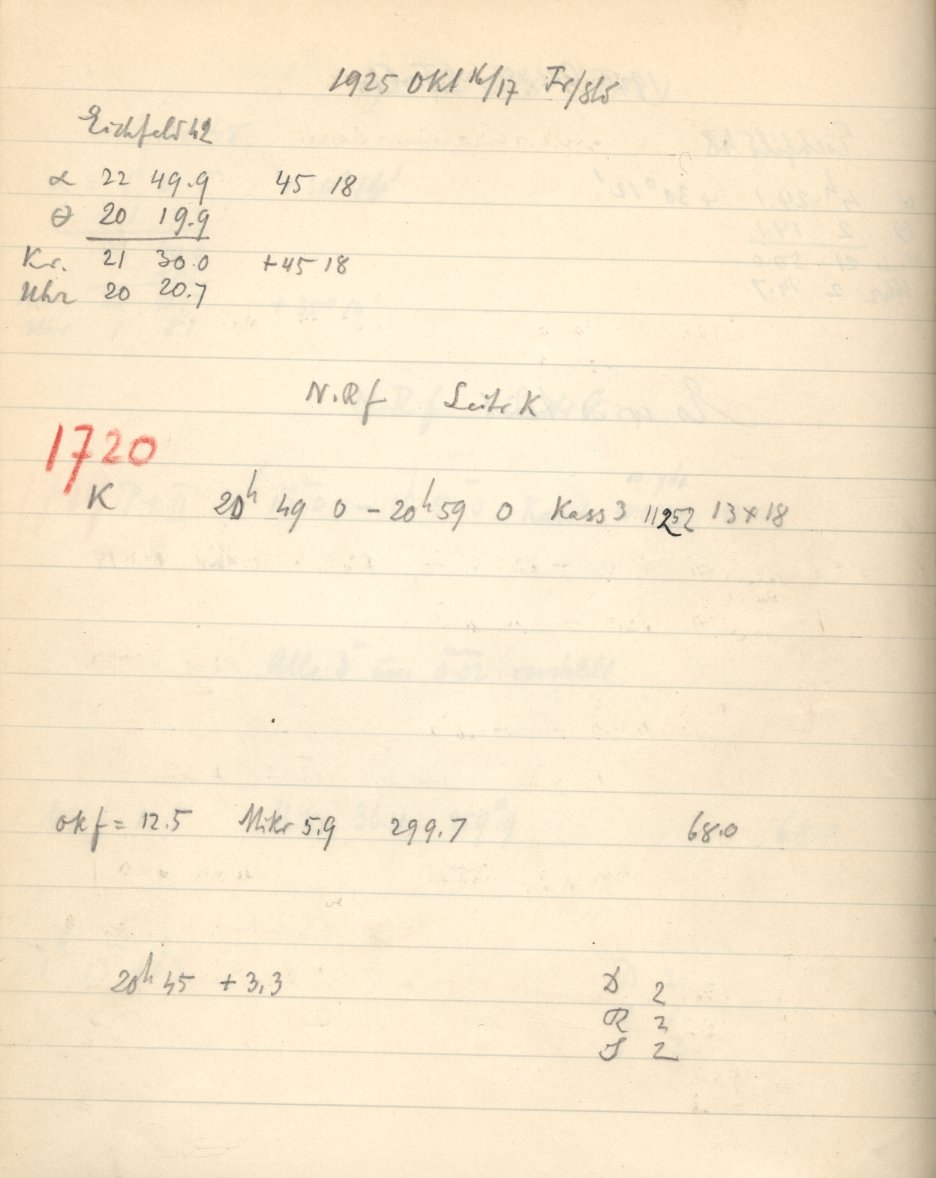 1925 Okt 16/17 Fr/Sb
Eichfeld 42
α 22 49.9 45 18
θ 20 19.9
Kr. 21 30.0 +45 18
Uhr 20 20.7
N. Rf Leitr K
1720
K 20h 49 0 - 20h 59 0 Kass 3 11252 13 x 18
okf = 12.5 Mikr 5.9 299.7 68.0
20h 45 +3.3
D 2
R 2
S 2